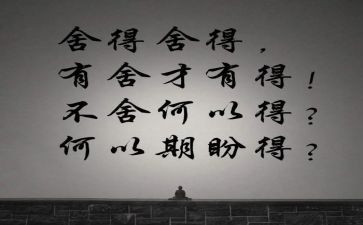 舍得舍得，
有舍才有得！
不舍何以得？
何以期盼得？